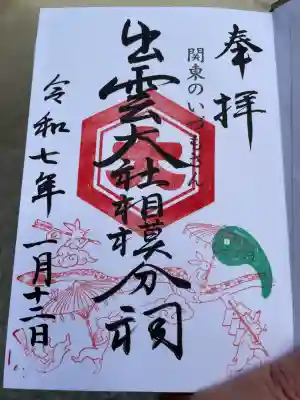 奉拝
関東のいづもさん
出雲大社相模分祠
令和七年 一月十二日